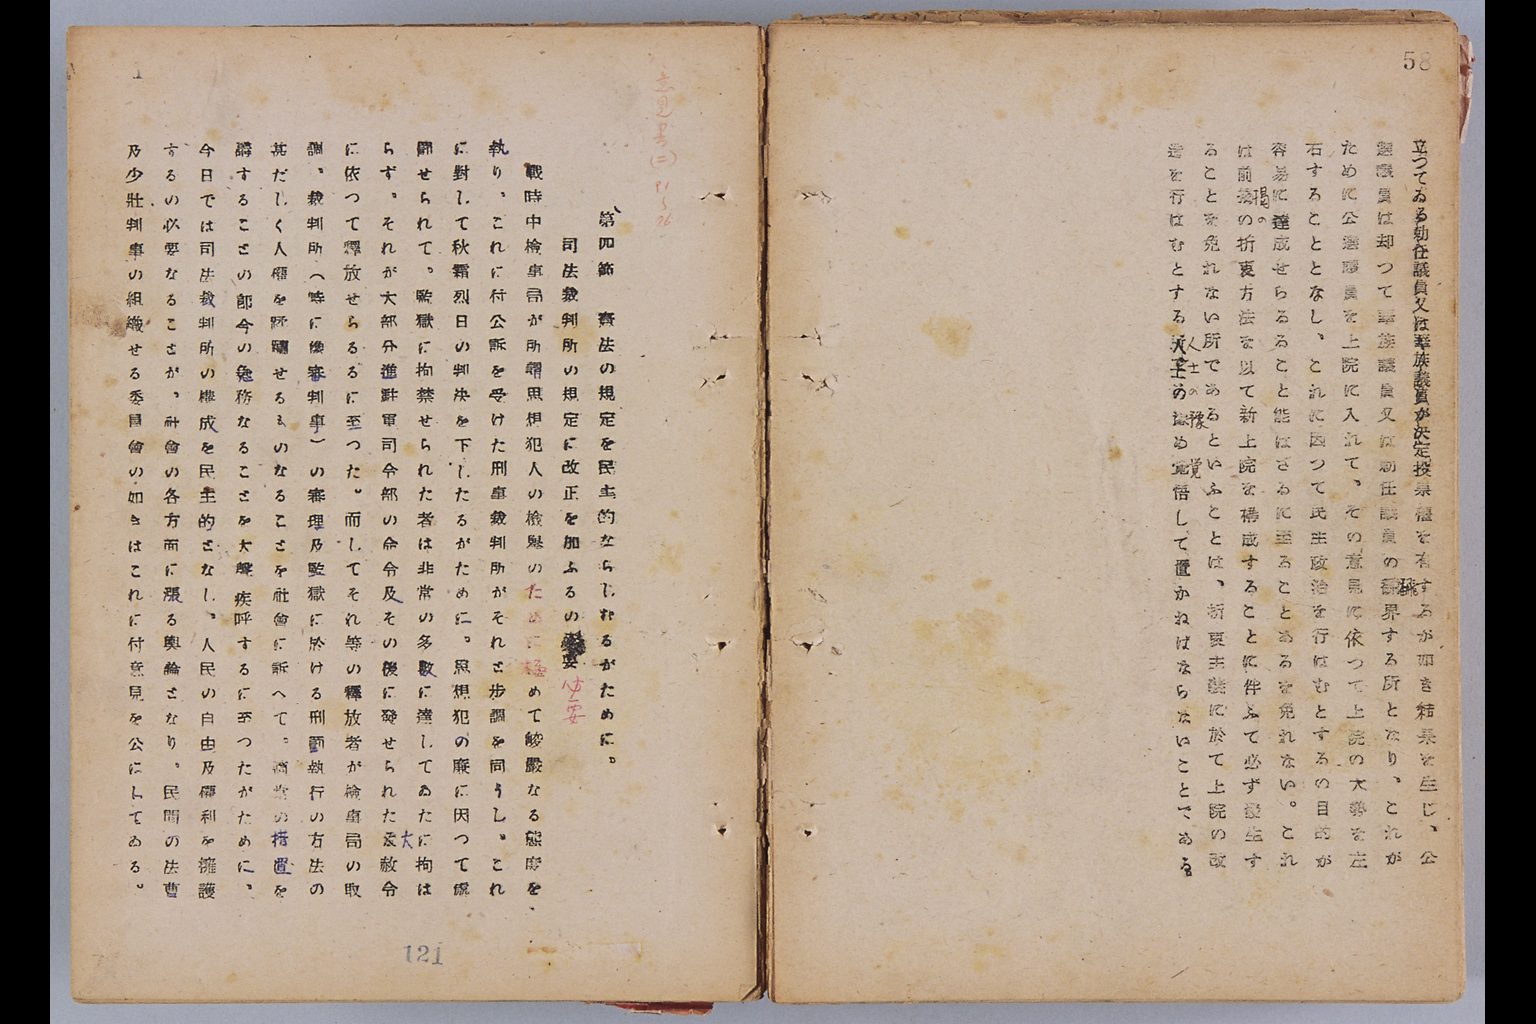 58
立つてゐる勅任議員又は華族議員が決定投票權を有するが如き結果を生じ、公
選議員は却つて華族議員又は勅任議員の 界する所となり、これが
ために公選議員を上院に入れて、その意見に依つて上院の大勢を左
右することとなし、これに因つて民主政治を行はむとするの目的が
容易に達成せらるること能はざるに至ることあるを免れない。これ
は前揭の折衷方法を以て新上院を構成することに伴ふて必ず發生す
ることを免れない所であるといふことは、折衷主義に於て上院の改
造を行はむとする人士の豫め覚悟して置かねばならないことである
意見書(二)
第四節 憲法の規定を民主的ならしむるがために。
司法裁判所の規定に改正を加ふるの必要
戰時中檢事局が所謂思想犯人の檢擧のために極めて峻嚴なる態度を、
執り。これに付公訴を受けた刑事裁判所がそれと步調を同うし。これ
に對して秋霜烈日の判決を下したるがために。思想犯の廉に因つて處
罰せられて。監獄に拘禁せられた者は非常の多數に達してゐたに拘は
らず。それが大部分進駐軍司令部の命令及その後に發せられた大赦令
に依つて釋放せらるるに至つた。而してそれ等の釋放者が檢事局の取
調。裁判所(特に豫審判事)の審理及監獄に於ける刑罰執行の方法の
甚だしく人權を蹂躙せるものなることを社會に訴へて。 の措置を
講することの卽今の急務なることを大聲疾呼するに至つたがために、
今日では司法裁判所の構成を民主的となし、人民の自由及權利を擁護
するの必要なることが。社會の各方面に漲る輿論となり。民間の法曹
及少壯判事の組織せる委員會の如きはこれに付意見を公にしてゐる。
1
121